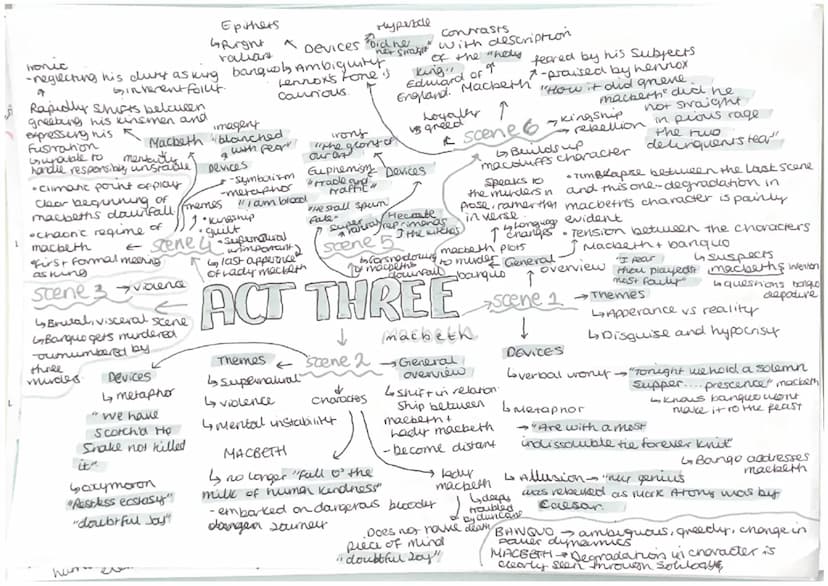 ACT THREE
macbeth
scene 1
General
overview
macbeth plots
to murder
banquo
Language
changes
speaks to
the murders in
prose, rather than
in verse
• Time lapse between the last scene
and this one - degradation in
macbeths character is plainly
evident
• Tension between the characters
Macbeth + banquo
"I fear
thou playedst
most fouly"
↳ suspects
macbeths intention
↳ questions banquo
departure
→ Themes
↳ Apperance vs reality
↳ Disguise and hypocrisy
DEVICES
↳ verbal irony → "Tonight we hold a solemn
supper.... prescence" macbeth
↳ knows banquo wont
make it to the feast
↳ Metaphor
→ "Are with a most
indissoluble tie forever knit"
↳ Banquo addresses
macbeth
↳ Allusion → "my genius
was rebuked as mark Antony was by
Caesar.
BANQUO → ambiguous, greedy, change in
power dynamics
MACBETH → Degradation in character is
clearly seen through
scene 2
→ General
overview
↳ shift in relation
ship between
macbeth +
Lady macbeth
- become distant
Themes
↳ supernatural
↳ violence
↳ Mental instability
characters
MACBETH
↳ no longer "full o' the
milk of human kindness"
- embarked on dangerous bloody
journey
lady
macbeth
↳ deeply
troubled
by duncans
death
Does not have
piece of mind
"doubtful joy"
Devices
↳ metaphor
"We have
scotch'd the
snake not killed
it"
↳ oxymoron
"Restless ecstasy"
"doubtful joy"
scene 3
→ violence
↳ Brutal, visceral scene
↳ Banquo gets murdered
- outnumbered by
three
murders
scene 4
• climatic point of play
clear beginning of
macbeths downfall
• chaotic regime of
macbeth
• first formal meeting
as king
Macbeth
↳ mentally
unstable
↳ unable to
handle responsibly
Rapidly shifts between
greeting his kinsmen and
expressing his
fustration
ironic
- neglecting his duty as king
↳ inherent folly
Themes
• kingship
• guilt
• supernatural
unimportant
↳ last apperance
of Lady macbeth
DEVICES
imagery
"blanched
with fear"
- symbolism
- metaphor
"I am blood
scene 5
↳ foreshadowing
of macbeths
downfall
super
natural
Hecate
reprimands
the witches
Devices
irony
"the glory of
our art"
Euphemism
"trade and
traffic"
"He shall spurn
fate"
scene 6
↳ Builds up
macduffs character
Loyalty
vs greed
→ kingship
→ rebellion
DEVICES
Epithets
↳ "Right
valiant
banquo"
↳ Ambiguity
Lennox's tone is
cautious
Hyperbole
"Did he
not straight"
contrasts
with description
of the "holy
king"
Edward of
England.
Macbeth
feared by his subjects
- praised by Lennox
"How it did grieve
macbeth" did he
not straight
in pious rage
the two
delinquents tear"